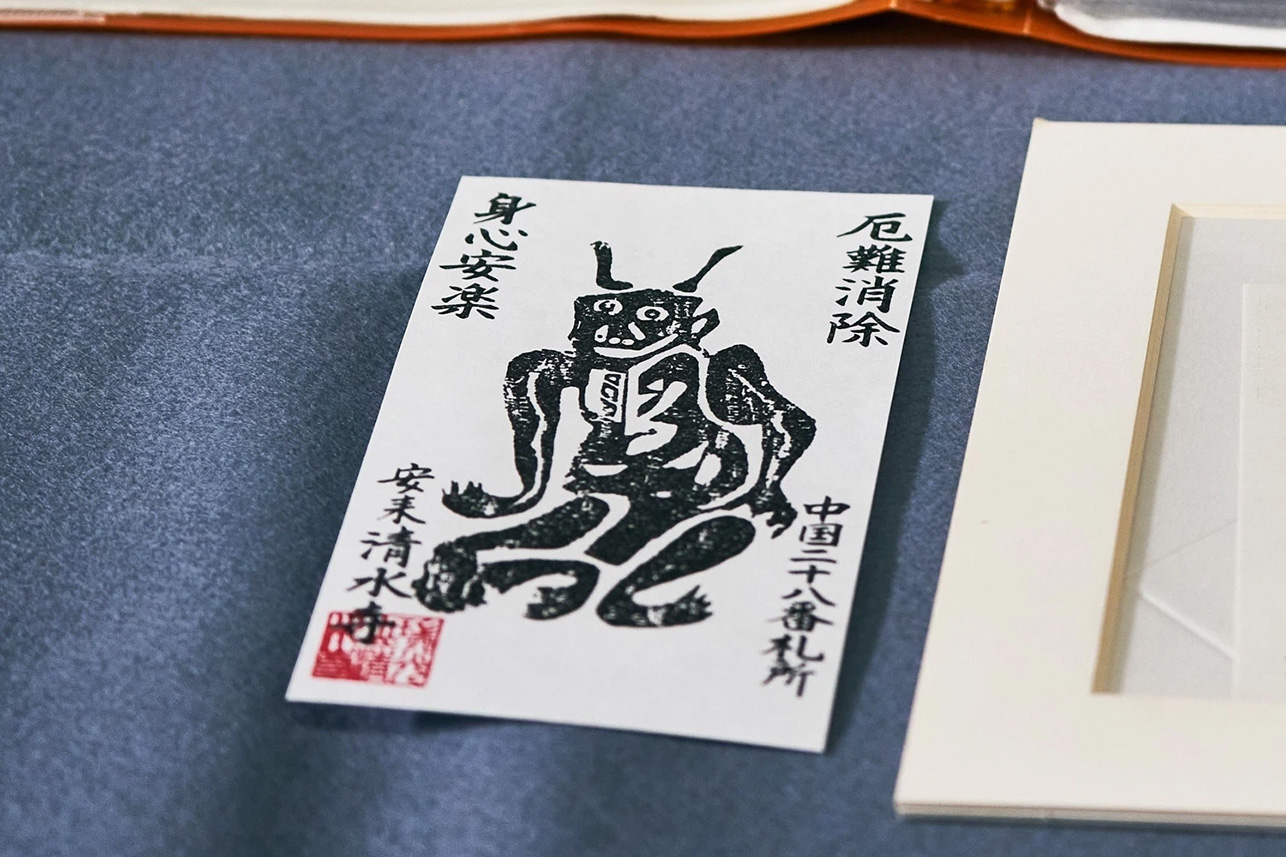 厄難消除
身心安楽
中国二十八番札所
安来清水寺